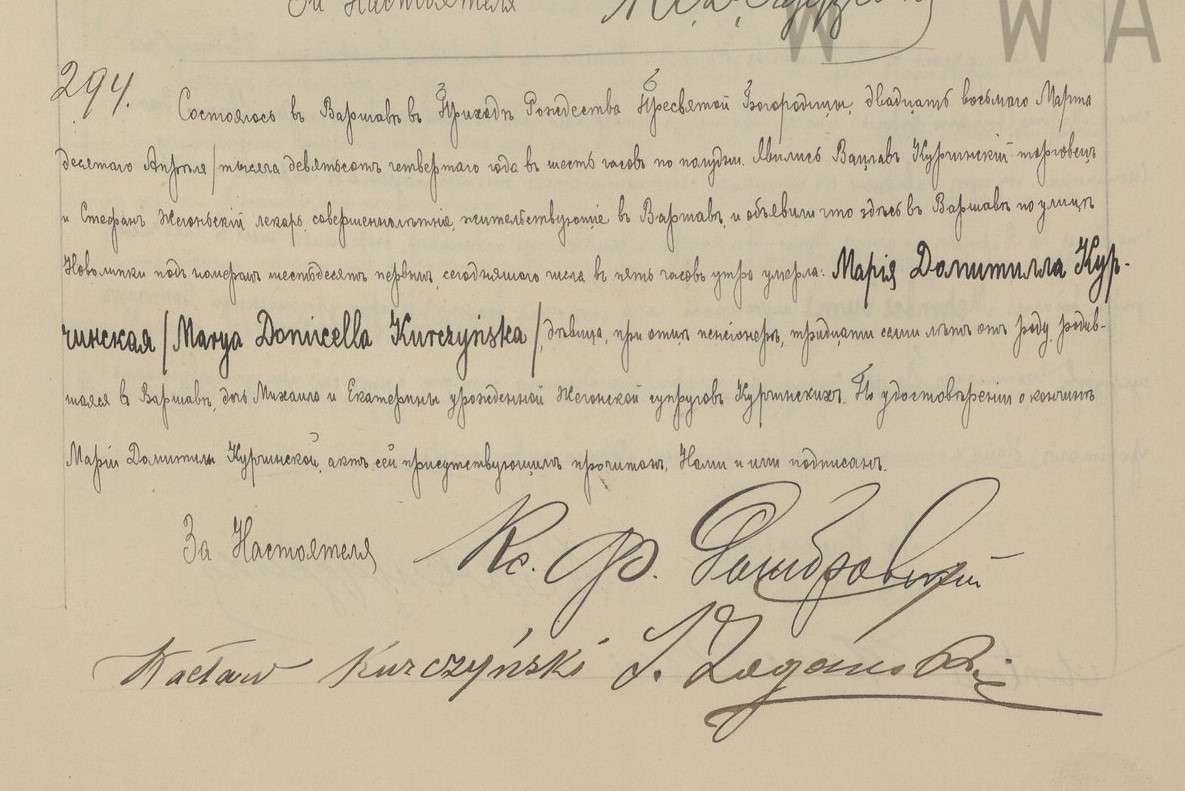 За Настоятеля
W W A
294.
Состоялось въ Варшавѣ въ Приходѣ Рождества Пресвятой Богородицы, двадцать восьмаго Марта
десятаго Апрѣля / тысяча девятьсотъ четвертаго года въ шесть часовъ по полудни. Явились Вацлавъ Курчинскій торговецъ
и Стефанъ лекарь, совершеннолѣтніе, жительствующіе въ Варшавѣ, и объявили что здѣсь въ Варшавѣ по улицѣ
Новолипки подъ номеромъ шестьдесятъ первымъ, сегодняшняго числа въ пять часовъ утра умерла: Марія Домитилла Кур-
чинская / Marya Domicella Kurczyńska /, дѣвица, при отцѣ пенсіонерѣ, тридцати семи лѣтъ отъ роду, родив-
шаяся въ Варшавѣ, дочь Михаила и Екатерины урожденной супруговъ Курчинскихъ. По удостовѣреніи о кончинѣ
Маріи Домитиллы Курчинской, актъ сей присутствующимъ прочитанъ, Нами и ими подписанъ.
За Настоятеля Кс. Ф. Домбровскій
Wacław Kurczyński S.